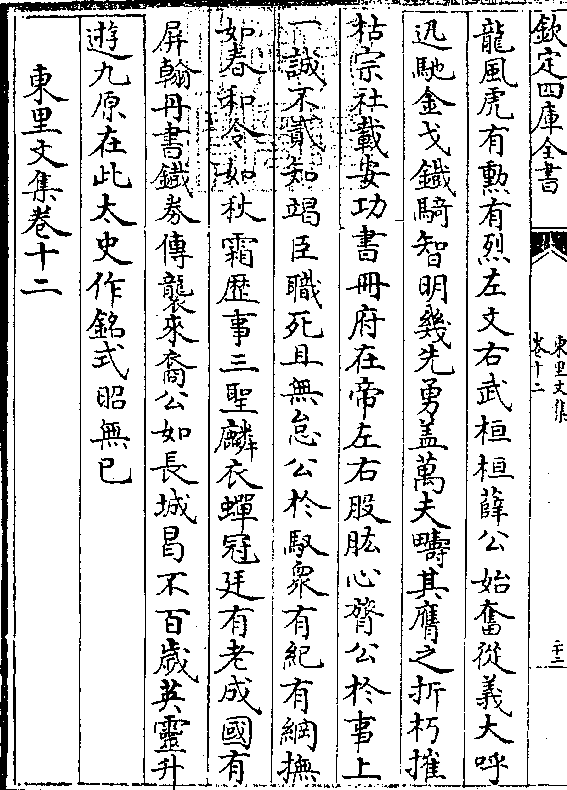 欽定四庫全書
東里文集
卷十二
二十二
龍風虎有勲有烈左文右武桓桓薛公始奮從義大呼
迅馳金戈鐡騎智明幾先勇盖萬夫疇其膺之折朽摧
枯宗社載安功書冊府在帝左右股肱心膂公於事上
一誠不貳知竭臣職死且無怠公於馭衆有紀有綱撫
如春和令如秋霜歴事三聖麟衣蟬冠廷有老成國有
屏翰丹書鐡券傳襲來裔公如長城曷不百歲英靈升
逰九原在此太史作銘式昭無已
東里文集卷十二